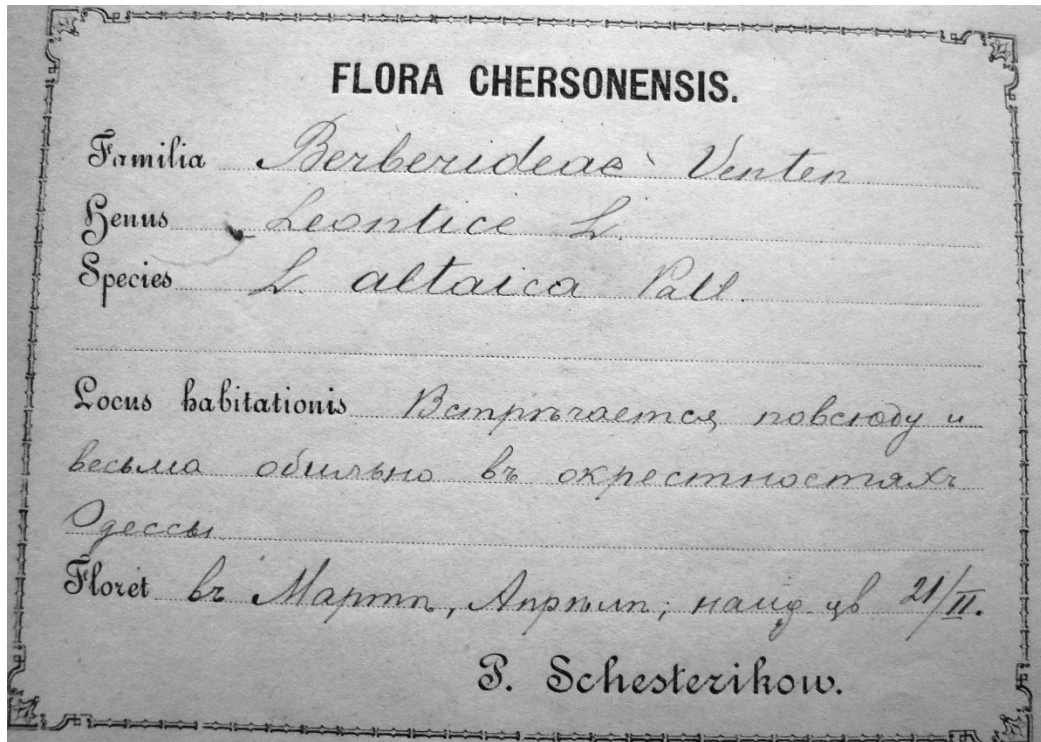 FLORA CHERSONENSIS.
Familia Berberideae Venten
Genus Leontice L.
Species L. altaica Pall.
Locus habitationis Встрѣчается повсюду и
весьма обильно въ окрестностяхъ
Одессы
Floret въ Мартѣ, Апрѣлѣ; найд цв 21/II.
P. Schesterikow.